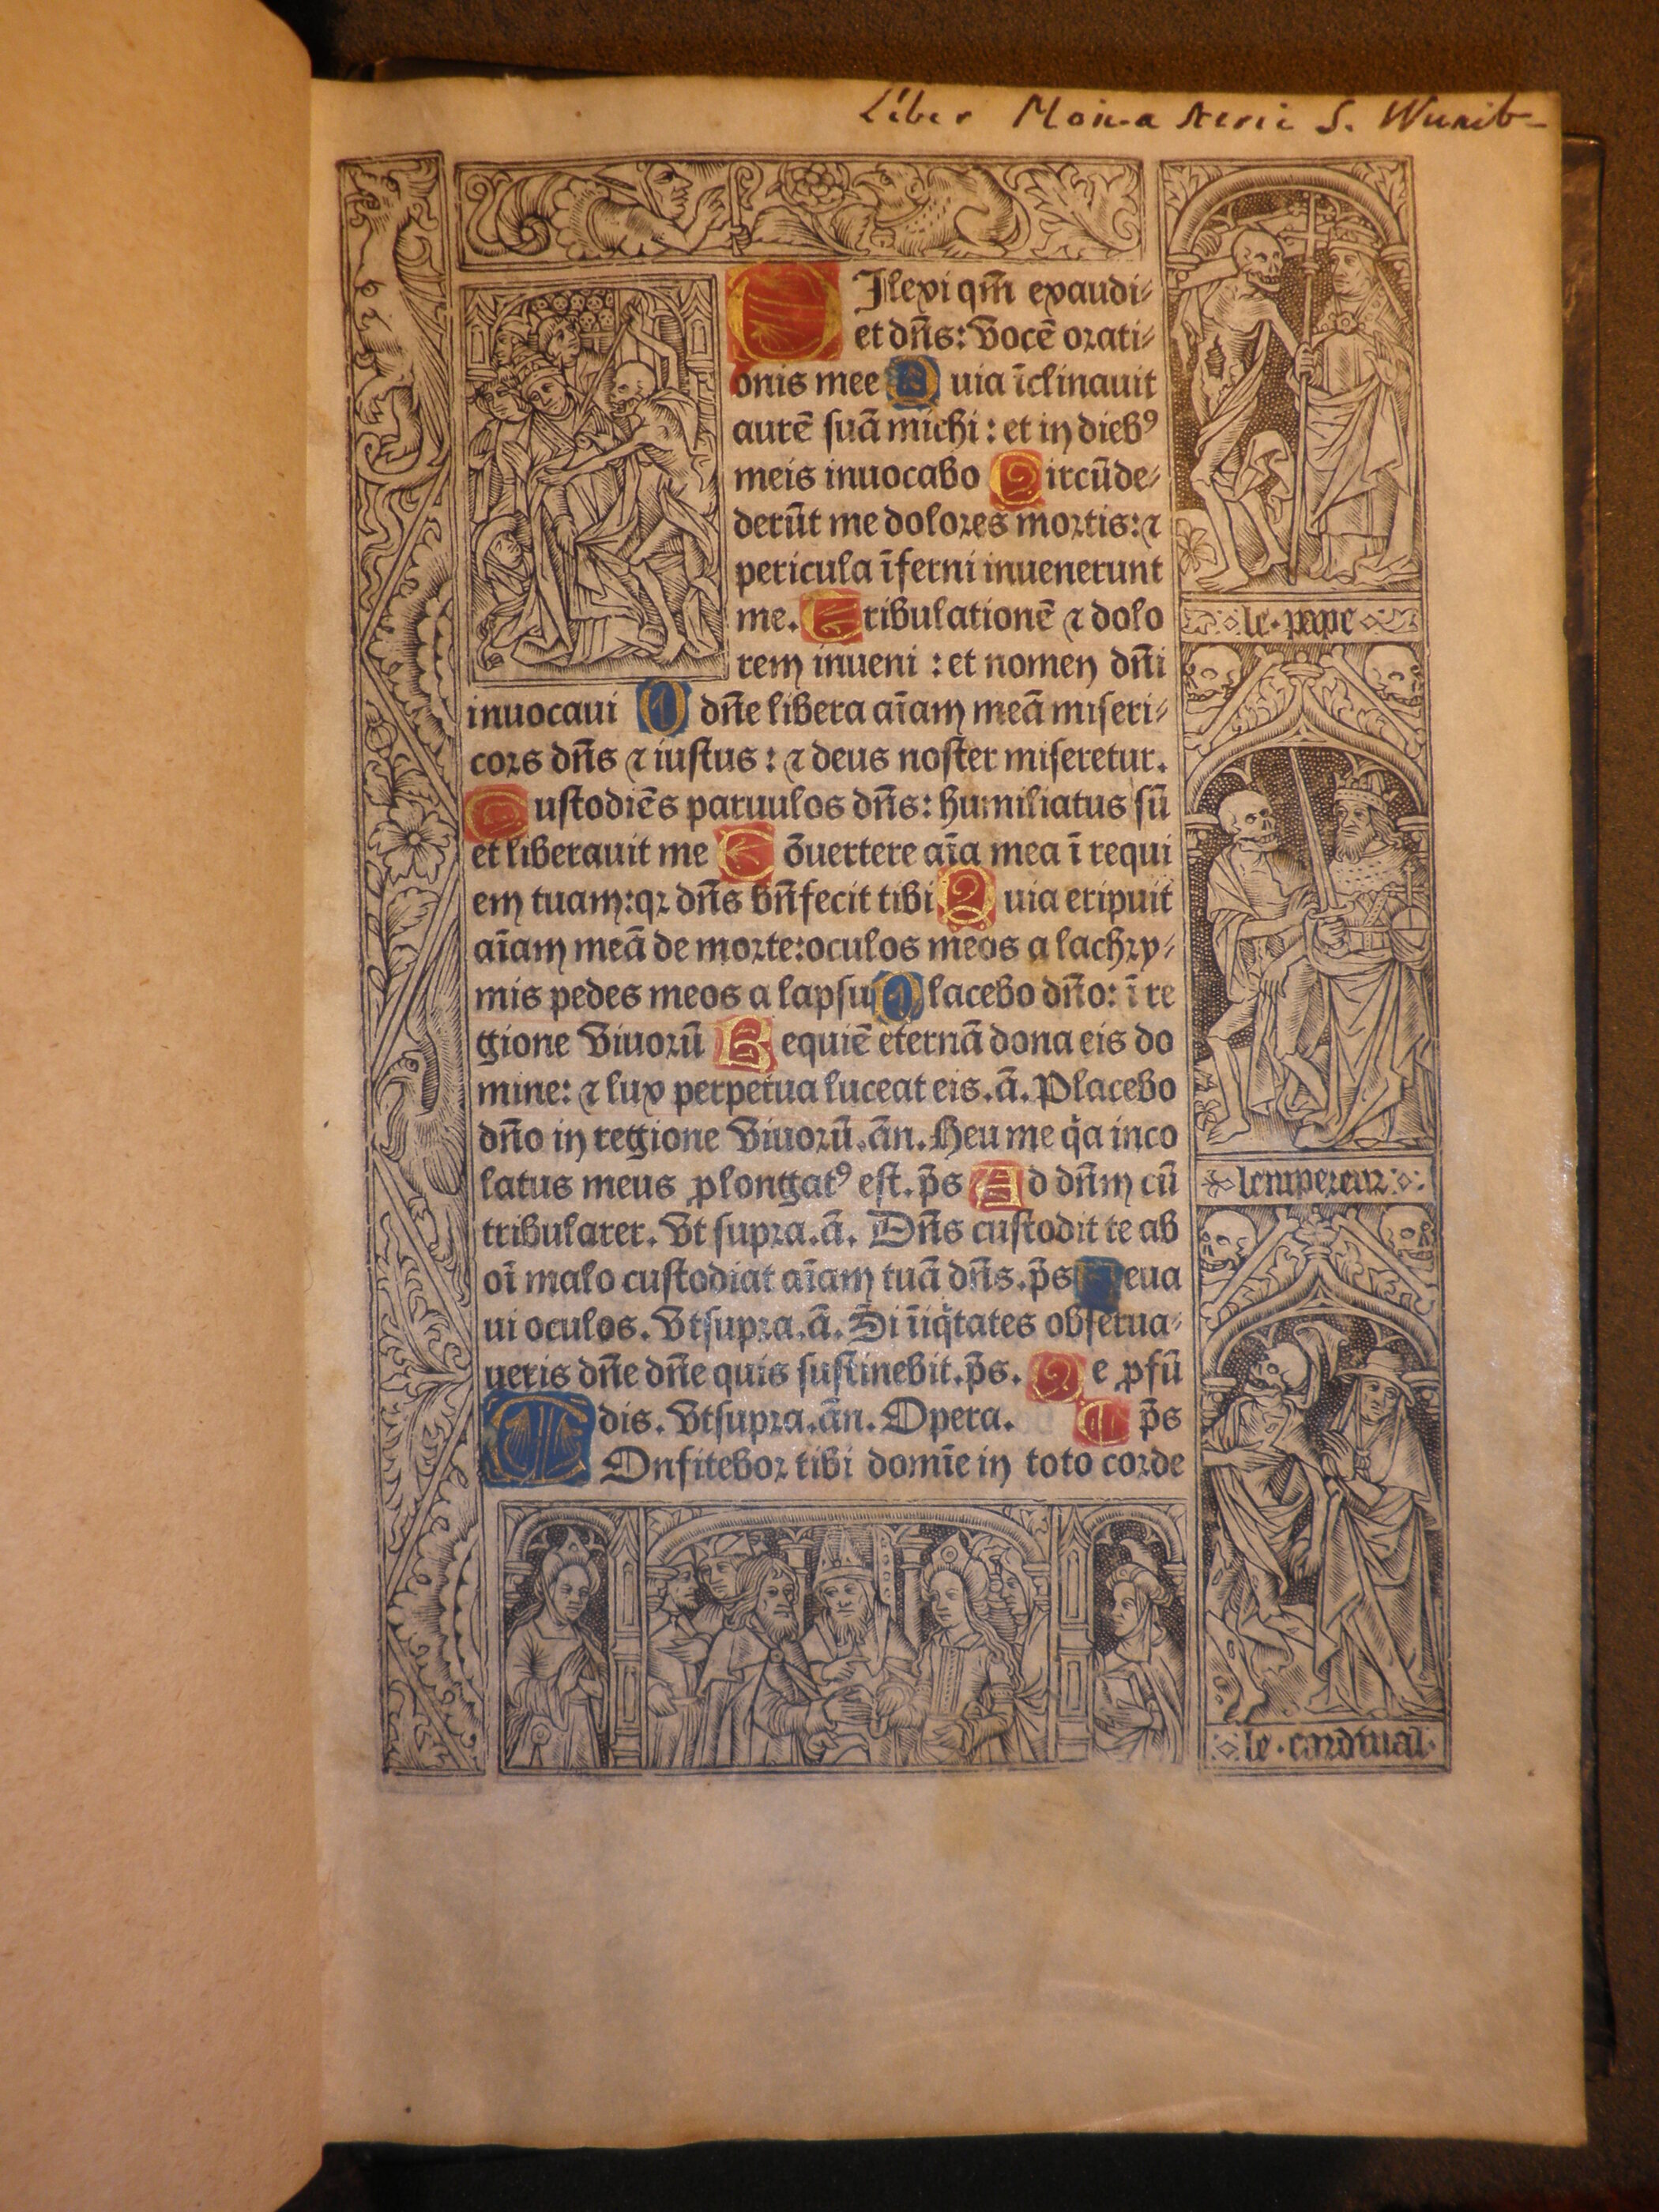 Liber Monasterii S. Wunib-
Ilexi qm̄ exaudi-
et dn̄s: vocē orati-
onis mee Quia īclinauit
aurē suā michi : et in diebꝰ
meis inuocabo Circūde-
derūt me dolores mortis: ⁊
pericula īferni inuenerunt
me. Tribulationē ⁊ dolo
rem inueni : et nomen dn̄i
inuocaui O dn̄e libera aīam meā miseri-
cors dn̄s ⁊ iustus : ⁊ deus noster miseretur.
Custodiēs paruulos dn̄s: humiliatus sū
et liberauit me Cōuertere aīa mea ī requi
em tuam:qꝛ dn̄s bn̄fecit tibi Quia eripuit
aīam meā de morte:oculos meos a lachry-
mis pedes meos a lapsu Placebo dn̄o: ī re
gione viuorū Requiē eternā dona eis do
mine: ⁊ lux perpetua luceat eis.ā. Placebo
dn̄o in regione viuorū.ān. Heu me q̄a inco
latus meus ꝓlongatꝰ est. p̄s Ad dn̄m cū
tribularer. Vt supra.ā. Dn̄s custodit te ab
oī malo custodiat aīam tuā dn̄s.p̄s Leua
ui oculos. Vt supra.ā. Si īiq̄tates obserua-
ueris dn̄e dn̄e quis sustinebit.p̄s. De ꝓfū
dis. Vt supra.ān. Opera. p̄s
COnfitebor tibi domīe in toto corde
le·pape
lempereur
le·cardinal